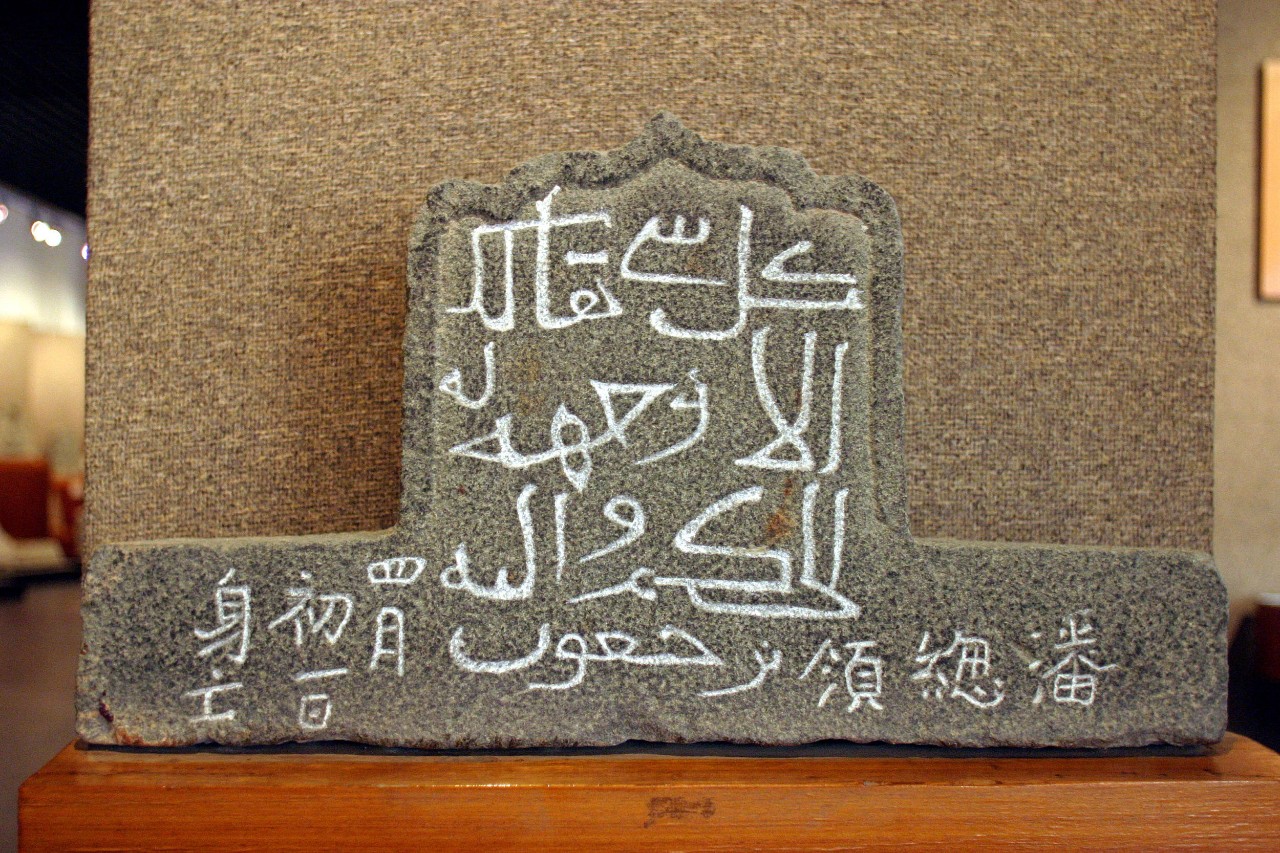 كل سى هالك
الا وجهه له
الحكم واليه
ترجعون
潘緫領
四月
初一日
身亡